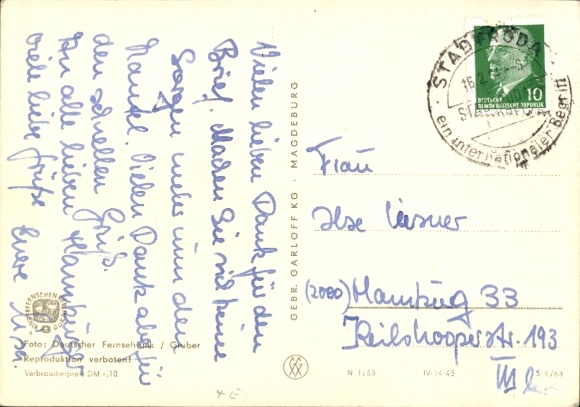 Vielen lieben Dank für den
Brief. Machen Sie sich keine
Sorgen mehr um den
Mantel. Vielen Dank aber für
den schnellen Gruß.
An alle lieben Hamburger
viele liebe Grüße Eure
STADTRODA
16.2.
ein internationaler Begriff
10
DEUTSCHE
DEMOKRATISCHE REPUBLIK
Frau
Ilse
(2000) Hamburg 33
Reilshooperstr. 193
III
GEBR. GARLOFF KG · MAGDEBURG
KINDERFERNSEHEN BERLIN DDR
Foto: Deutscher Fernsehfunk / Gruber
Reproduktion verboten!
Verbraucherpreis DM -,10
N 1/63
IV-14-45
S 6/63